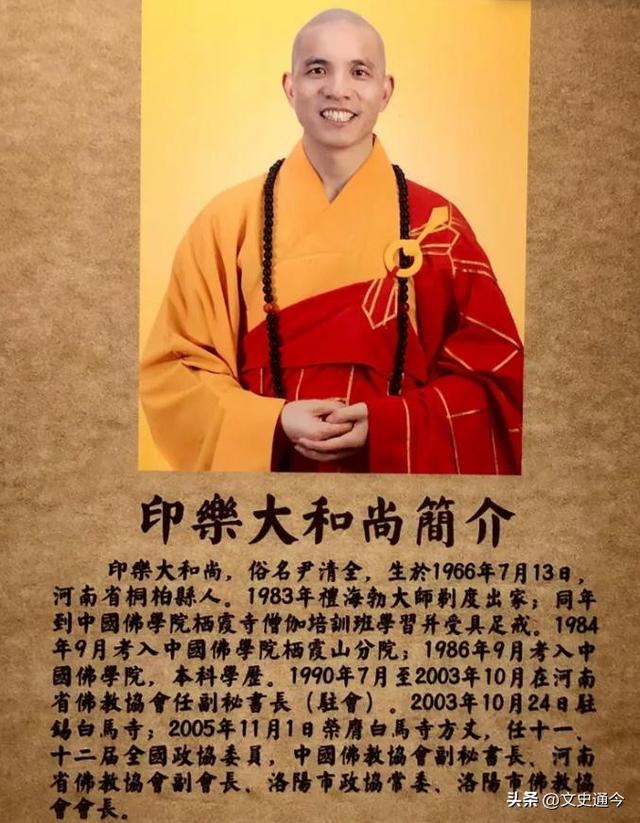 印樂大和尚簡介
印樂大和尚，俗名尹清全，生於1966年7月13日，
河南省桐柏縣人。1983年禮海勃大師剃度出家；同年
到中國佛學院栖霞寺僧伽培訓班學習并受具足戒。1984
年9月考入中國佛學院栖霞山分院；1986年9月考入中
國佛學院，本科學歷。1990年7月至2003年10月在河南
省佛教協會任副秘書長（駐會）。2003年10月24日駐
錫白馬寺；2005年11月1日榮膺白馬寺方丈，任十一、
十二届全國政協委員，中國佛教協會副秘書長、河南
省佛教協會副會長、洛陽市政協常委、洛陽市佛教協
會會長。
头条 @文史通今